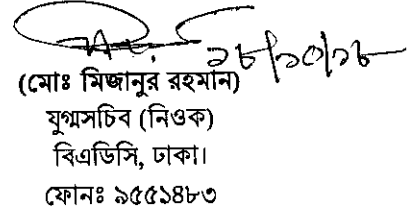 ১৮/১০/১৮
(মোঃ মিজানুর রহমান)
যুগ্মসচিব (নিওক)
বিএডিসি, ঢাকা।
ফোনঃ ৯৫৫১৪৮৩